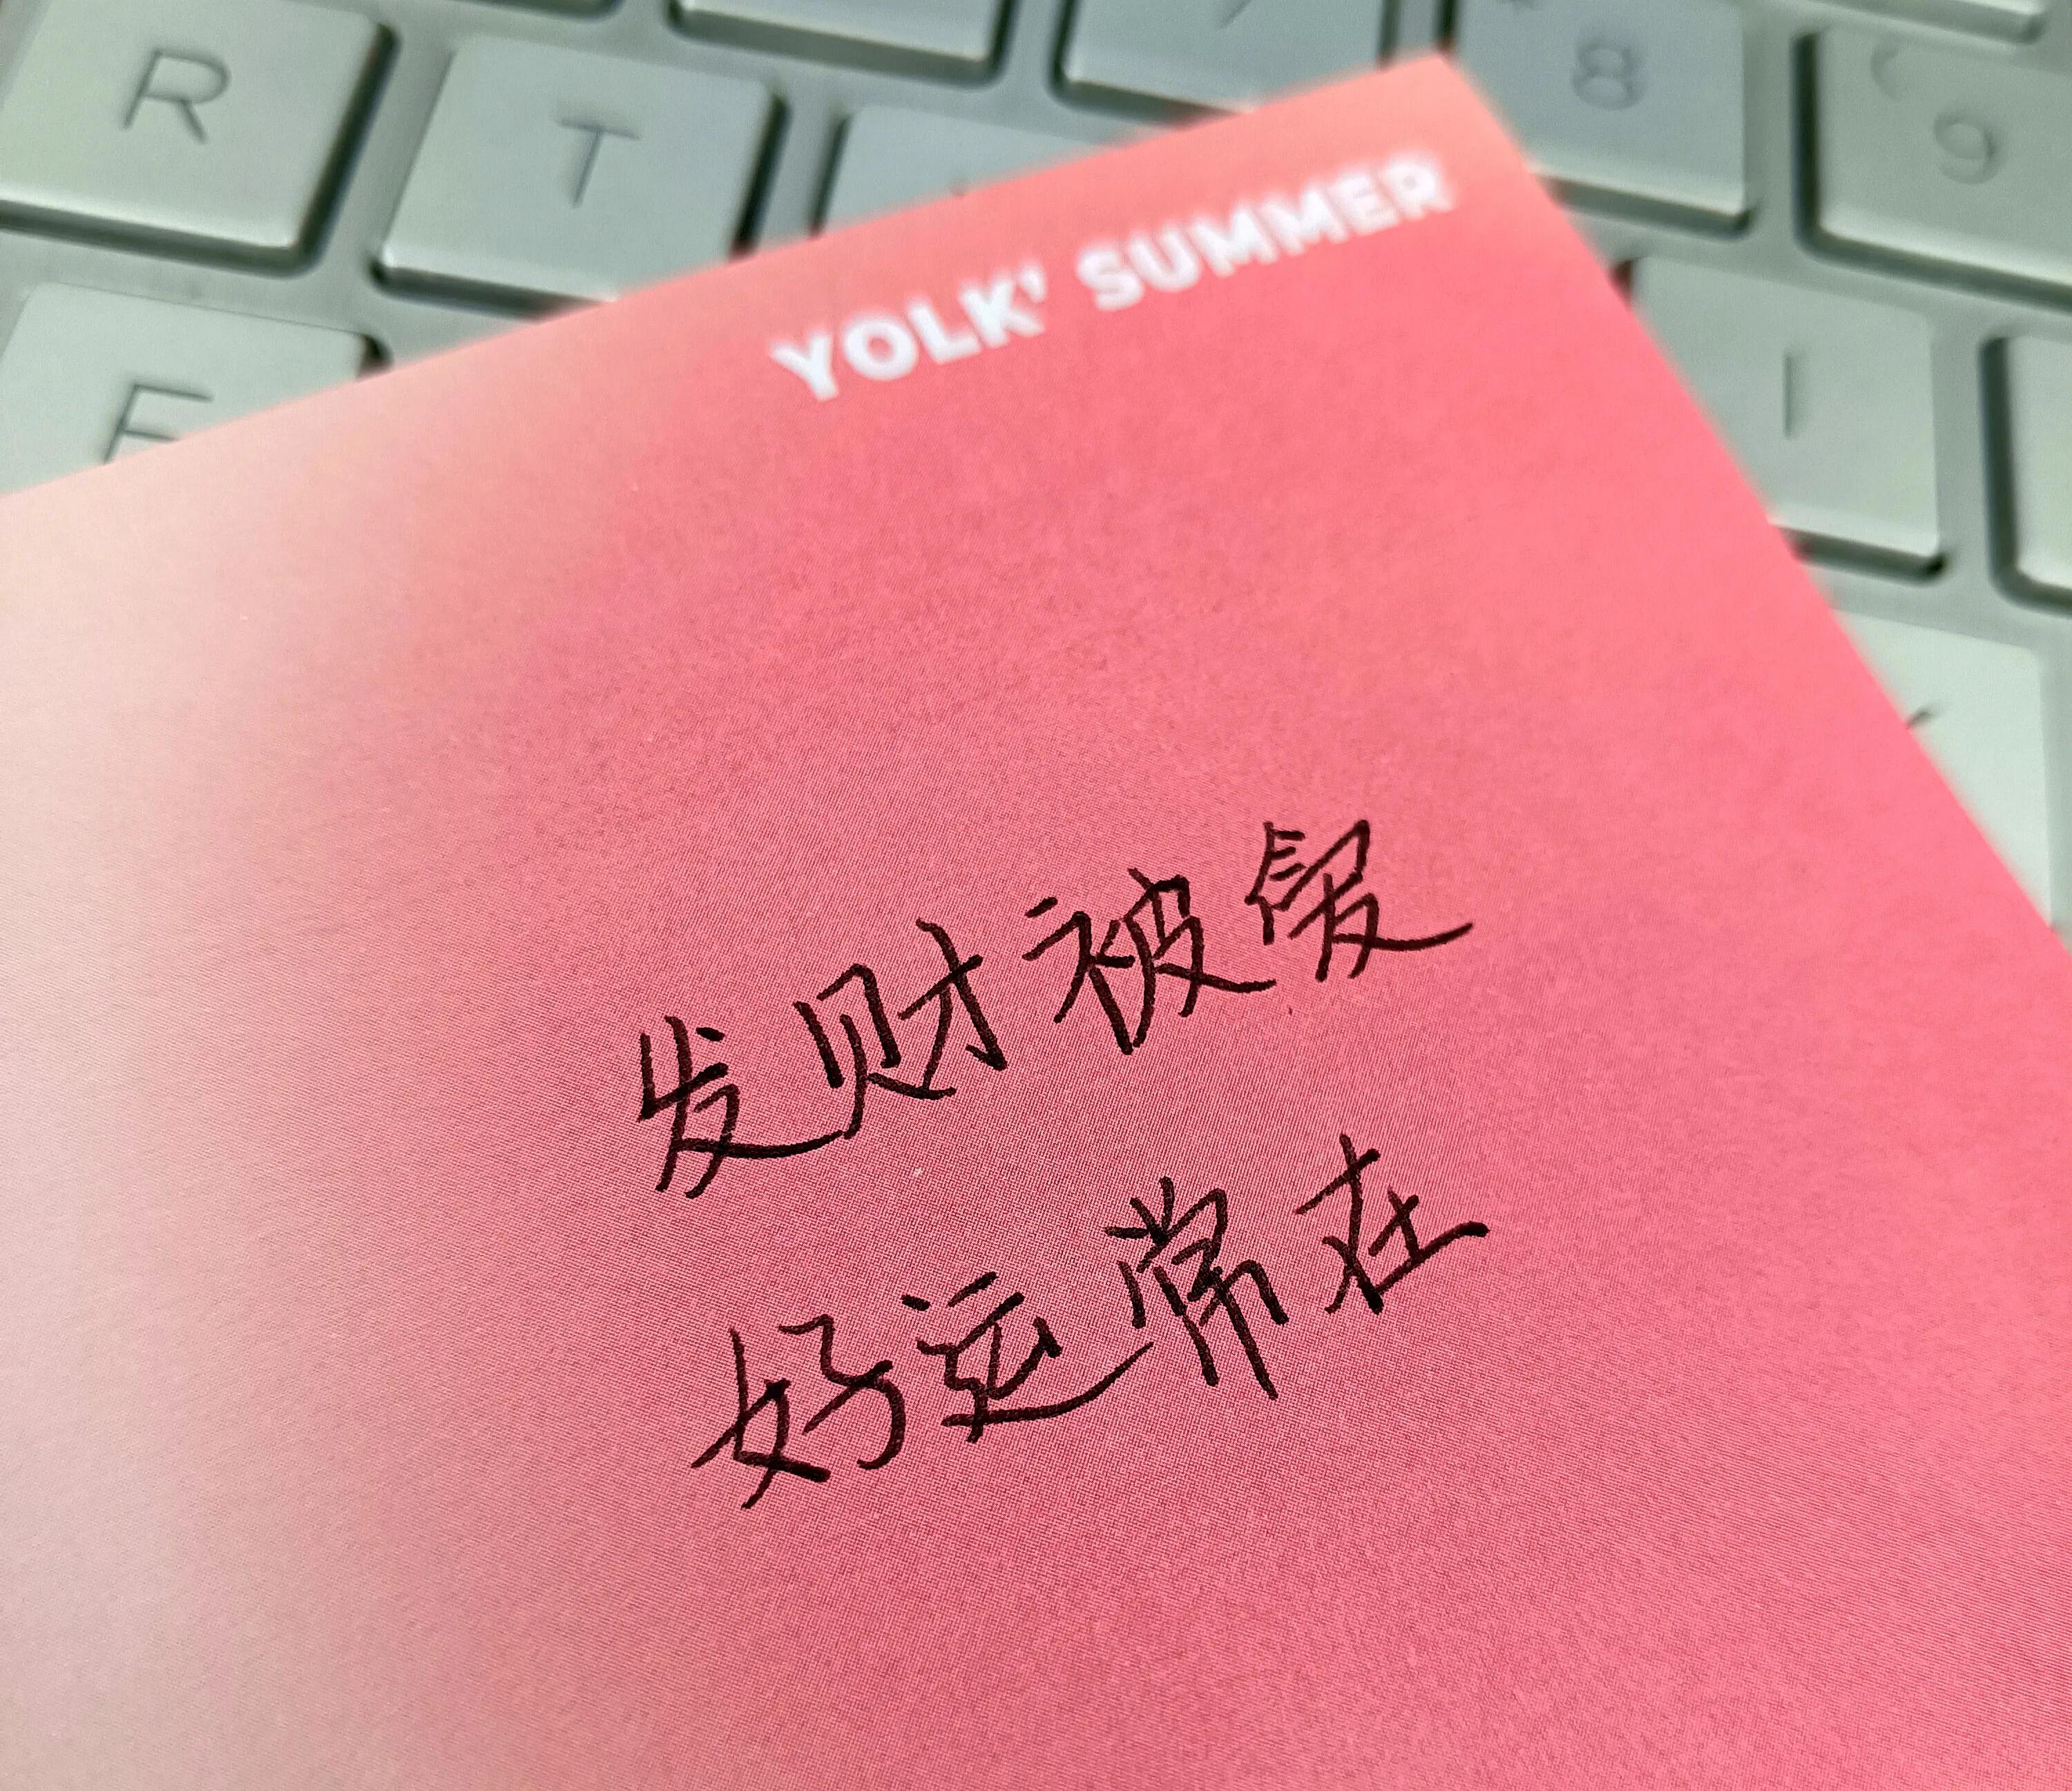 R T 8 9
YOLK' SUMMER
F I
发财被爱
好运常在